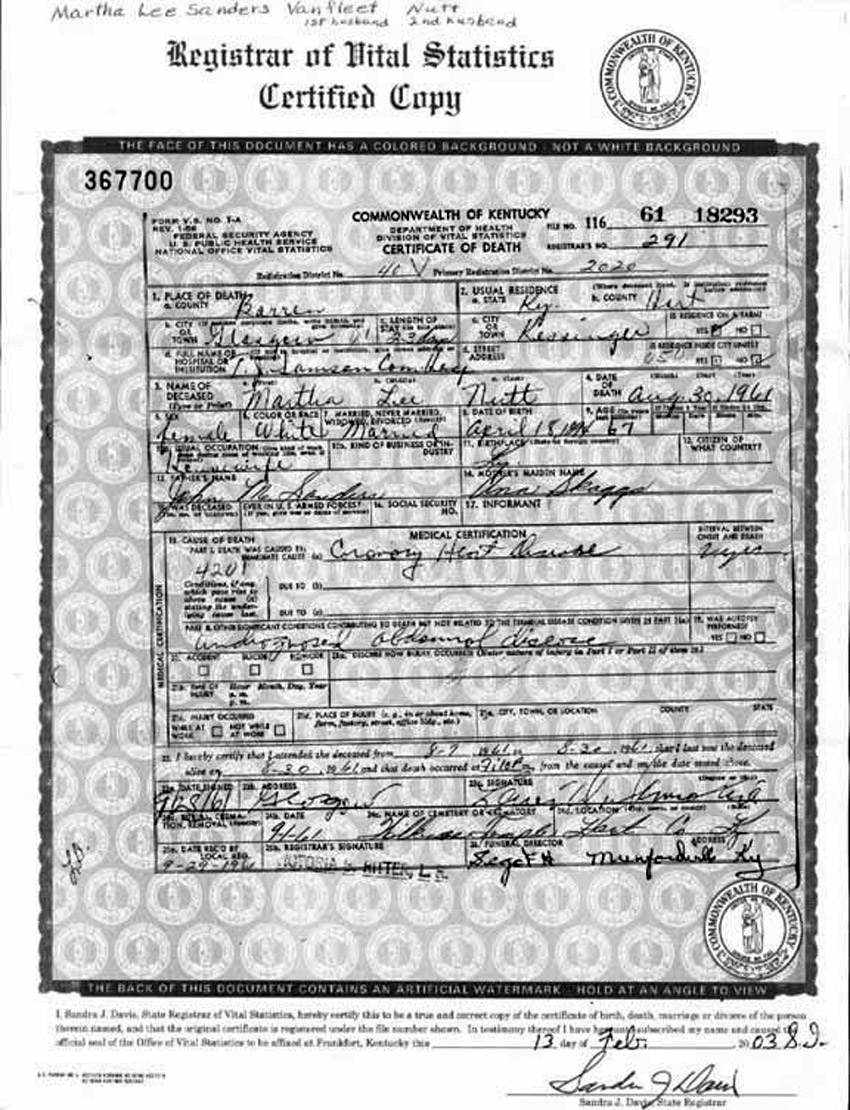 Martha Lee Sanders Vanfleet Nutt
1st husband 2nd husband
Registrar of Vital Statistics
Certified Copy
COMMONWEALTH OF KENTUCKY
THE FACE OF THIS DOCUMENT HAS A COLORED BACKGROUND - NOT A WHITE BACKGROUND
367700
FORM V.S. NO. 1-A
FEDERAL SECURITY AGENCY
U. S. PUBLIC HEALTH SERVICE
NATIONAL OFFICE VITAL STATISTICS
COMMONWEALTH OF KENTUCKY
DEPARTMENT OF HEALTH
DIVISION OF VITAL STATISTICS
CERTIFICATE OF DEATH
FILE NO. 116 61 18293
REGISTRAR'S NO. 291
Registration District No. 40 Primary Registration District No. 2020
1. PLACE OF DEATH
a. COUNTY Barren
2. USUAL RESIDENCE
a. STATE Ky. b. COUNTY Hart
b. CITY OR TOWN Glasgow
c. LENGTH OF STAY 23 days
c. CITY OR TOWN Kessinger
IS RESIDENCE ON A FARM?
YES NO
d. FULL NAME OF HOSPITAL OR INSTITUTION T. J. Samson
d. STREET ADDRESS
YES NO
3. NAME OF DECEASED (Type or Print) Martha Lee Nutt
4. DATE OF DEATH Aug. 30, 1961
5. SEX Female
6. COLOR OR RACE White
7. MARRIED, NEVER MARRIED, WIDOWED, DIVORCED Married
8. DATE OF BIRTH April 18,
9. AGE 67
10a. USUAL OCCUPATION Housewife
10b. KIND OF BUSINESS OR INDUSTRY
11. BIRTHPLACE Ky
12. CITIZEN OF WHAT COUNTRY?
13. FATHER'S NAME John M. Sanders
14. MOTHER'S MAIDEN NAME Ana Skaggs
15. WAS DECEASED EVER IN U. S. ARMED FORCES?
16. SOCIAL SECURITY NO.
17. INFORMANT
MEDICAL CERTIFICATION
18. CAUSE OF DEATH
PART I. DEATH WAS CAUSED BY:
IMMEDIATE CAUSE (a) Coronary Heart Disease
INTERVAL BETWEEN ONSET AND DEATH
4201
Conditions, if any, which gave rise to above cause (a) stating the underlying cause last.
DUE TO (b)
DUE TO (c)
PART II. OTHER SIGNIFICANT CONDITIONS CONTRIBUTING TO DEATH BUT NOT RELATED TO THE TERMINAL DISEASE CONDITION GIVEN IN PART I(a)
19. WAS AUTOPSY PERFORMED?
YES NO
undiagnosed abdominal disease
ACCIDENT SUICIDE HOMICIDE
DESCRIBE HOW INJURY OCCURRED (Enter nature of injury in Part I or Part II of item 18.)
TIME OF INJURY Hour Month, Day, Year
a. m.
p. m.
INJURY OCCURRED
WHILE AT WORK NOT WHILE AT WORK
PLACE OF INJURY (e. g., in or about home, farm, factory, street, office bldg., etc.)
CITY, TOWN, OR LOCATION COUNTY STATE
22. I hereby certify that I attended the deceased from 8-7, 1961, to 8-30, 1961, that I last saw the deceased
alive on 8-30, 1961 and that death occurred at m., from the causes and on the date stated above.
DATE SIGNED 9/28/61
23b. ADDRESS Glasgow
SIGNATURE
24b. DATE 9-1-61
24c. NAME OF CEMETERY OR CREMATORY Temple
24d. LOCATION Hart Co Ky
25a. DATE REC'D BY LOCAL REG. 9-29-1961
25b. REGISTRAR'S SIGNATURE
RITTER
FUNERAL DIRECTOR ADDRESS
Munfordville Ky
COMMONWEALTH OF KENTUCKY
THE BACK OF THIS DOCUMENT CONTAINS AN ARTIFICIAL WATERMARK - HOLD AT AN ANGLE TO VIEW
I, Sandra J. Davis, State Registrar of Vital Statistics, hereby certify this to be a true and correct copy of the certificate of birth, death, marriage or divorce of the person
therein named, and that the original certificate is registered under the file number shown. In testimony thereof I have hereunto subscribed my name and caused the
official seal of the Office of Vital Statistics to be affixed at Frankfort, Kentucky this 13 day of Feb. 2003 S.D.
Sandra J Davis
Sandra J. Davis, State Registrar